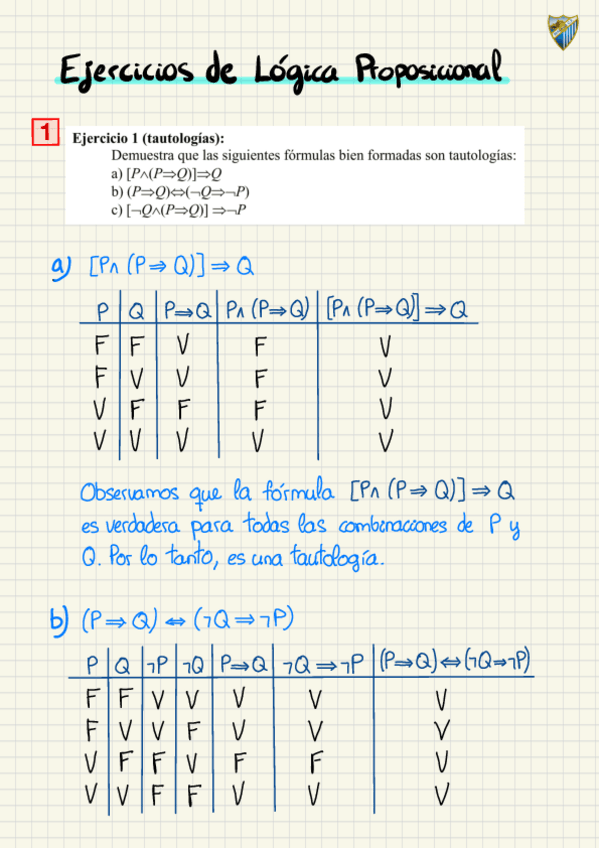 Ejercicios de Lógica Proposicional
1
Ejercicio 1 (tautologías):
Demuestra que las siguientes fórmulas bien formadas son tautologías:
a) [P∧(P⇒Q)]⇒Q
b) (P⇒Q)⇔(¬Q⇒¬P)
c) [¬Q∧(P⇒Q)] ⇒¬P
a) [P∧ (P⇒ Q)] ⇒ Q
P Q P⇒Q P∧ (P⇒Q) [P∧ (P⇒Q)] ⇒ Q
F F V F V
F V V F V
V F F F V
V V V V V
Observamos que la fórmula [P∧ (P⇒ Q)] ⇒ Q
es verdadera para todas las combinaciones de P y
Q. Por lo tanto, es una tautología.
b) (P⇒ Q) ⇔ (¬Q⇒ ¬P)
P Q ¬P ¬Q P⇒Q ¬Q ⇒¬P (P⇒Q)⇔(¬Q⇒¬P)
F F V V V V V
F V V F V V V
V F F V F F V
V V F F V V V